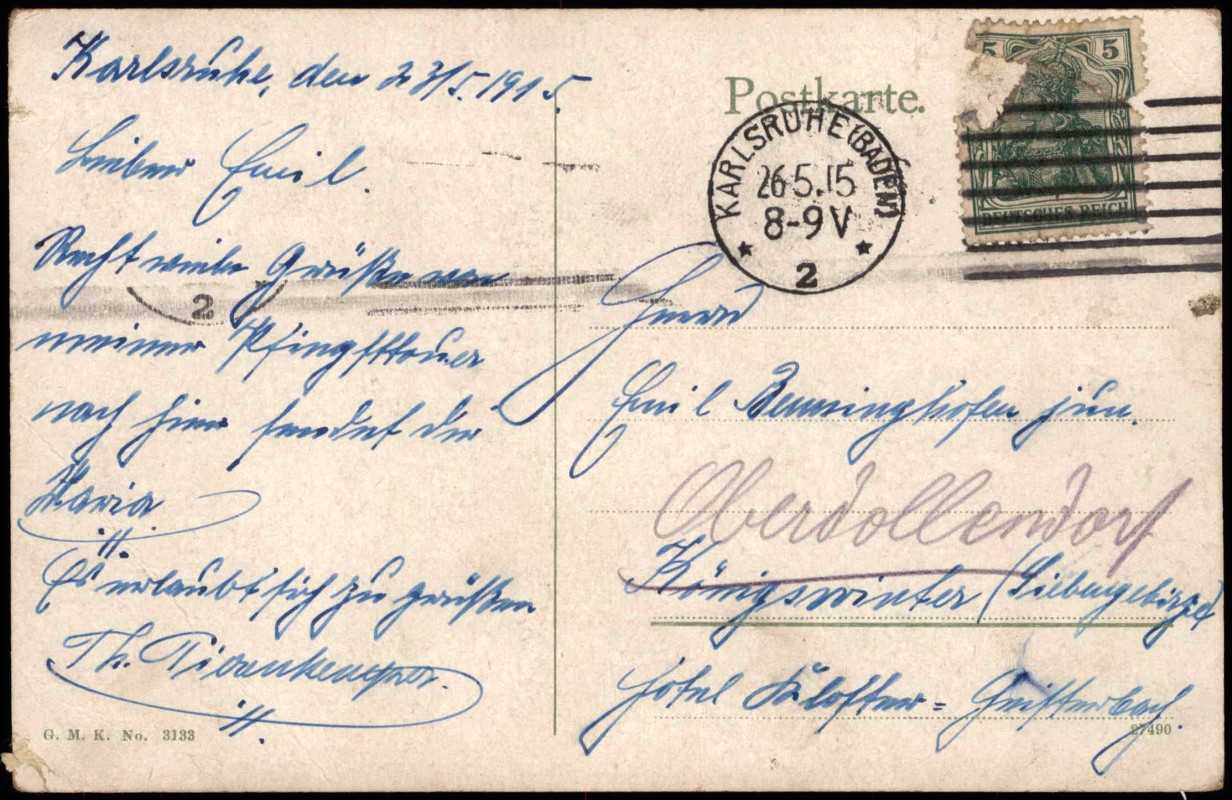 Karlsruhe, den 23/5.1915.
Lieber Emil.
Recht viele Grüße von
meiner Pfingsttour
nach hier sendet dir
Maria
Es erlaubt sich zu grüßen
Th.
G. M. K. No. 3133
Postkarte.
KARLSRUHE (BADEN)
26.5.15
8-9V
2
2
5
5
DEUTSCHES REICH
Herrn
Emil Benninghofen jun.
Oberdollendorf
Königswinter (Siebengebirge)
Hotel Kloster = Heisterbach.
27490